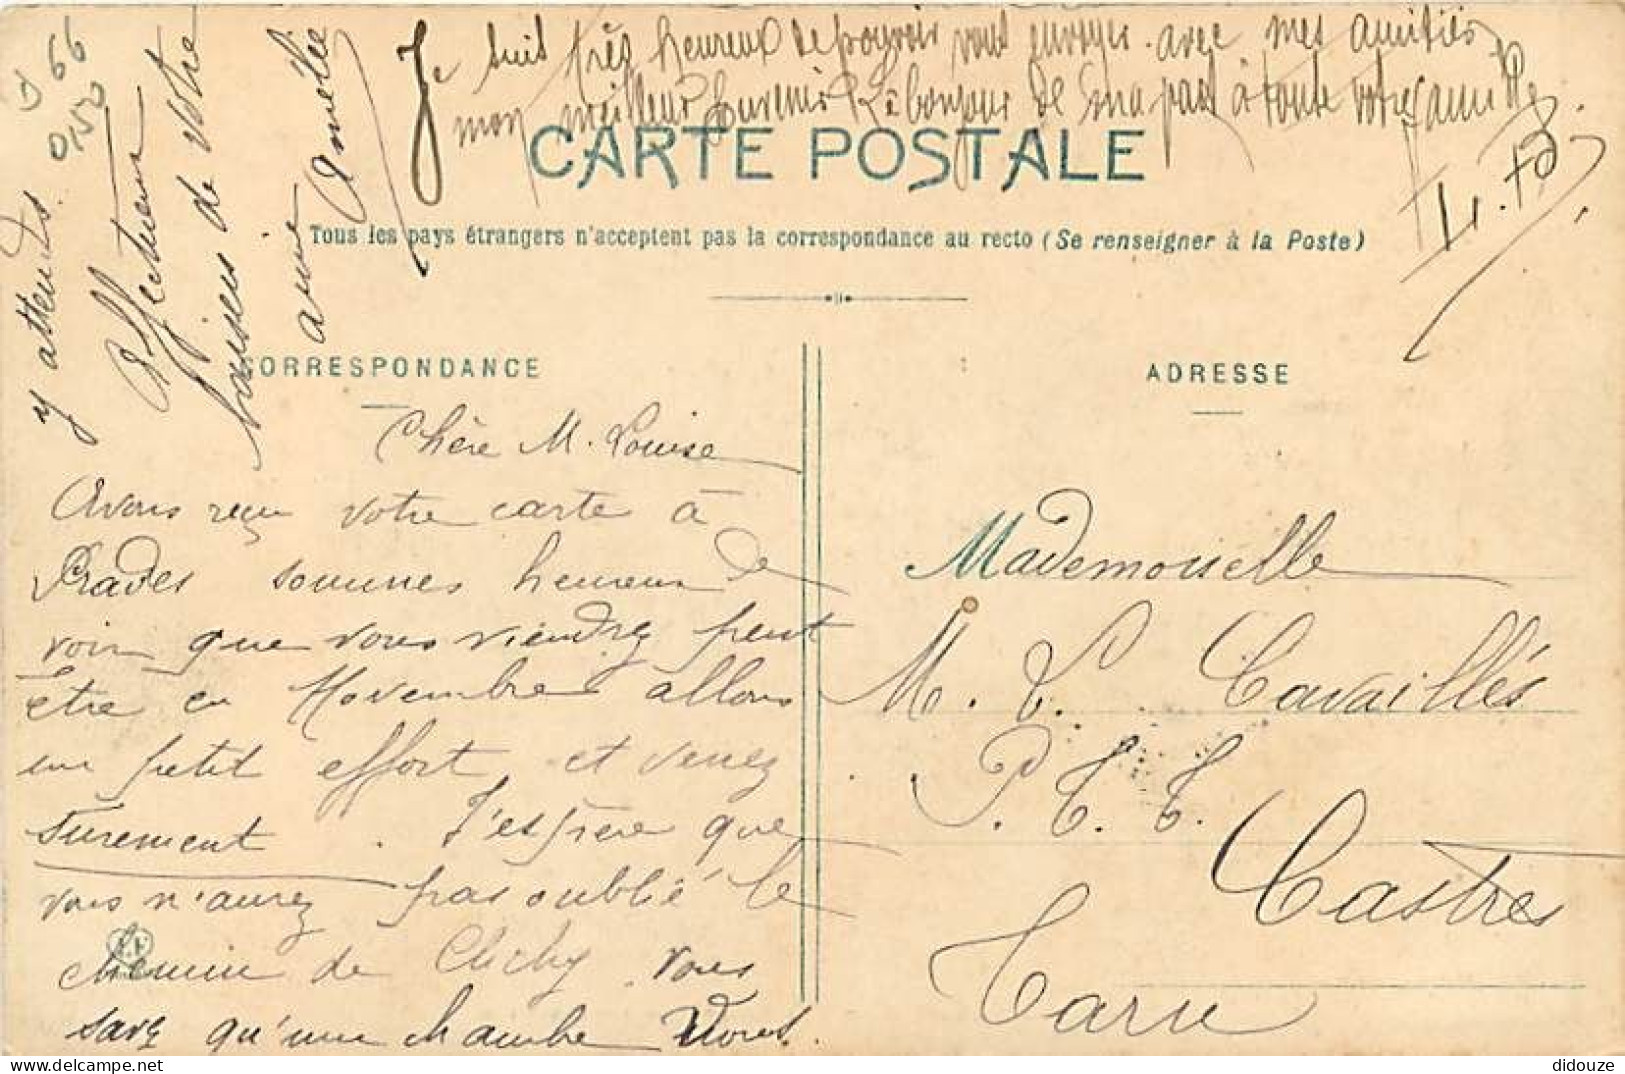 Je suis très heureux de pouvoir vous envoyer avec mes amitiés
mon meilleur souvenir bonjour de ma part à toute votre famille
CARTE POSTALE
Tous les pays étrangers n'acceptent pas la correspondance au recto (Se renseigner à la Poste)
CORRESPONDANCE
ADRESSE
Chère M. Louise
Avons reçu votre carte à
Prades sommes heureux de
voir que vous viendrez peut
être en Novembre allons
un petit effort et venez
surement. J'espère que
vous n'aurez pas oublié le
chemin de Clichy vous
savez qu'une chambre vous
y attends.
Affectueux
baisers de votre
amie Amélie
Mademoiselle
M. L. Cavaillés
P. T. T.
Castres
Tarn
66
didouze